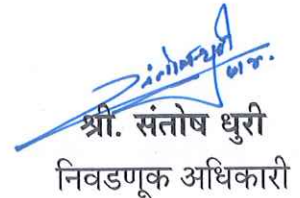 श्री. संतोष धुरी
निवडणूक अधिकारी